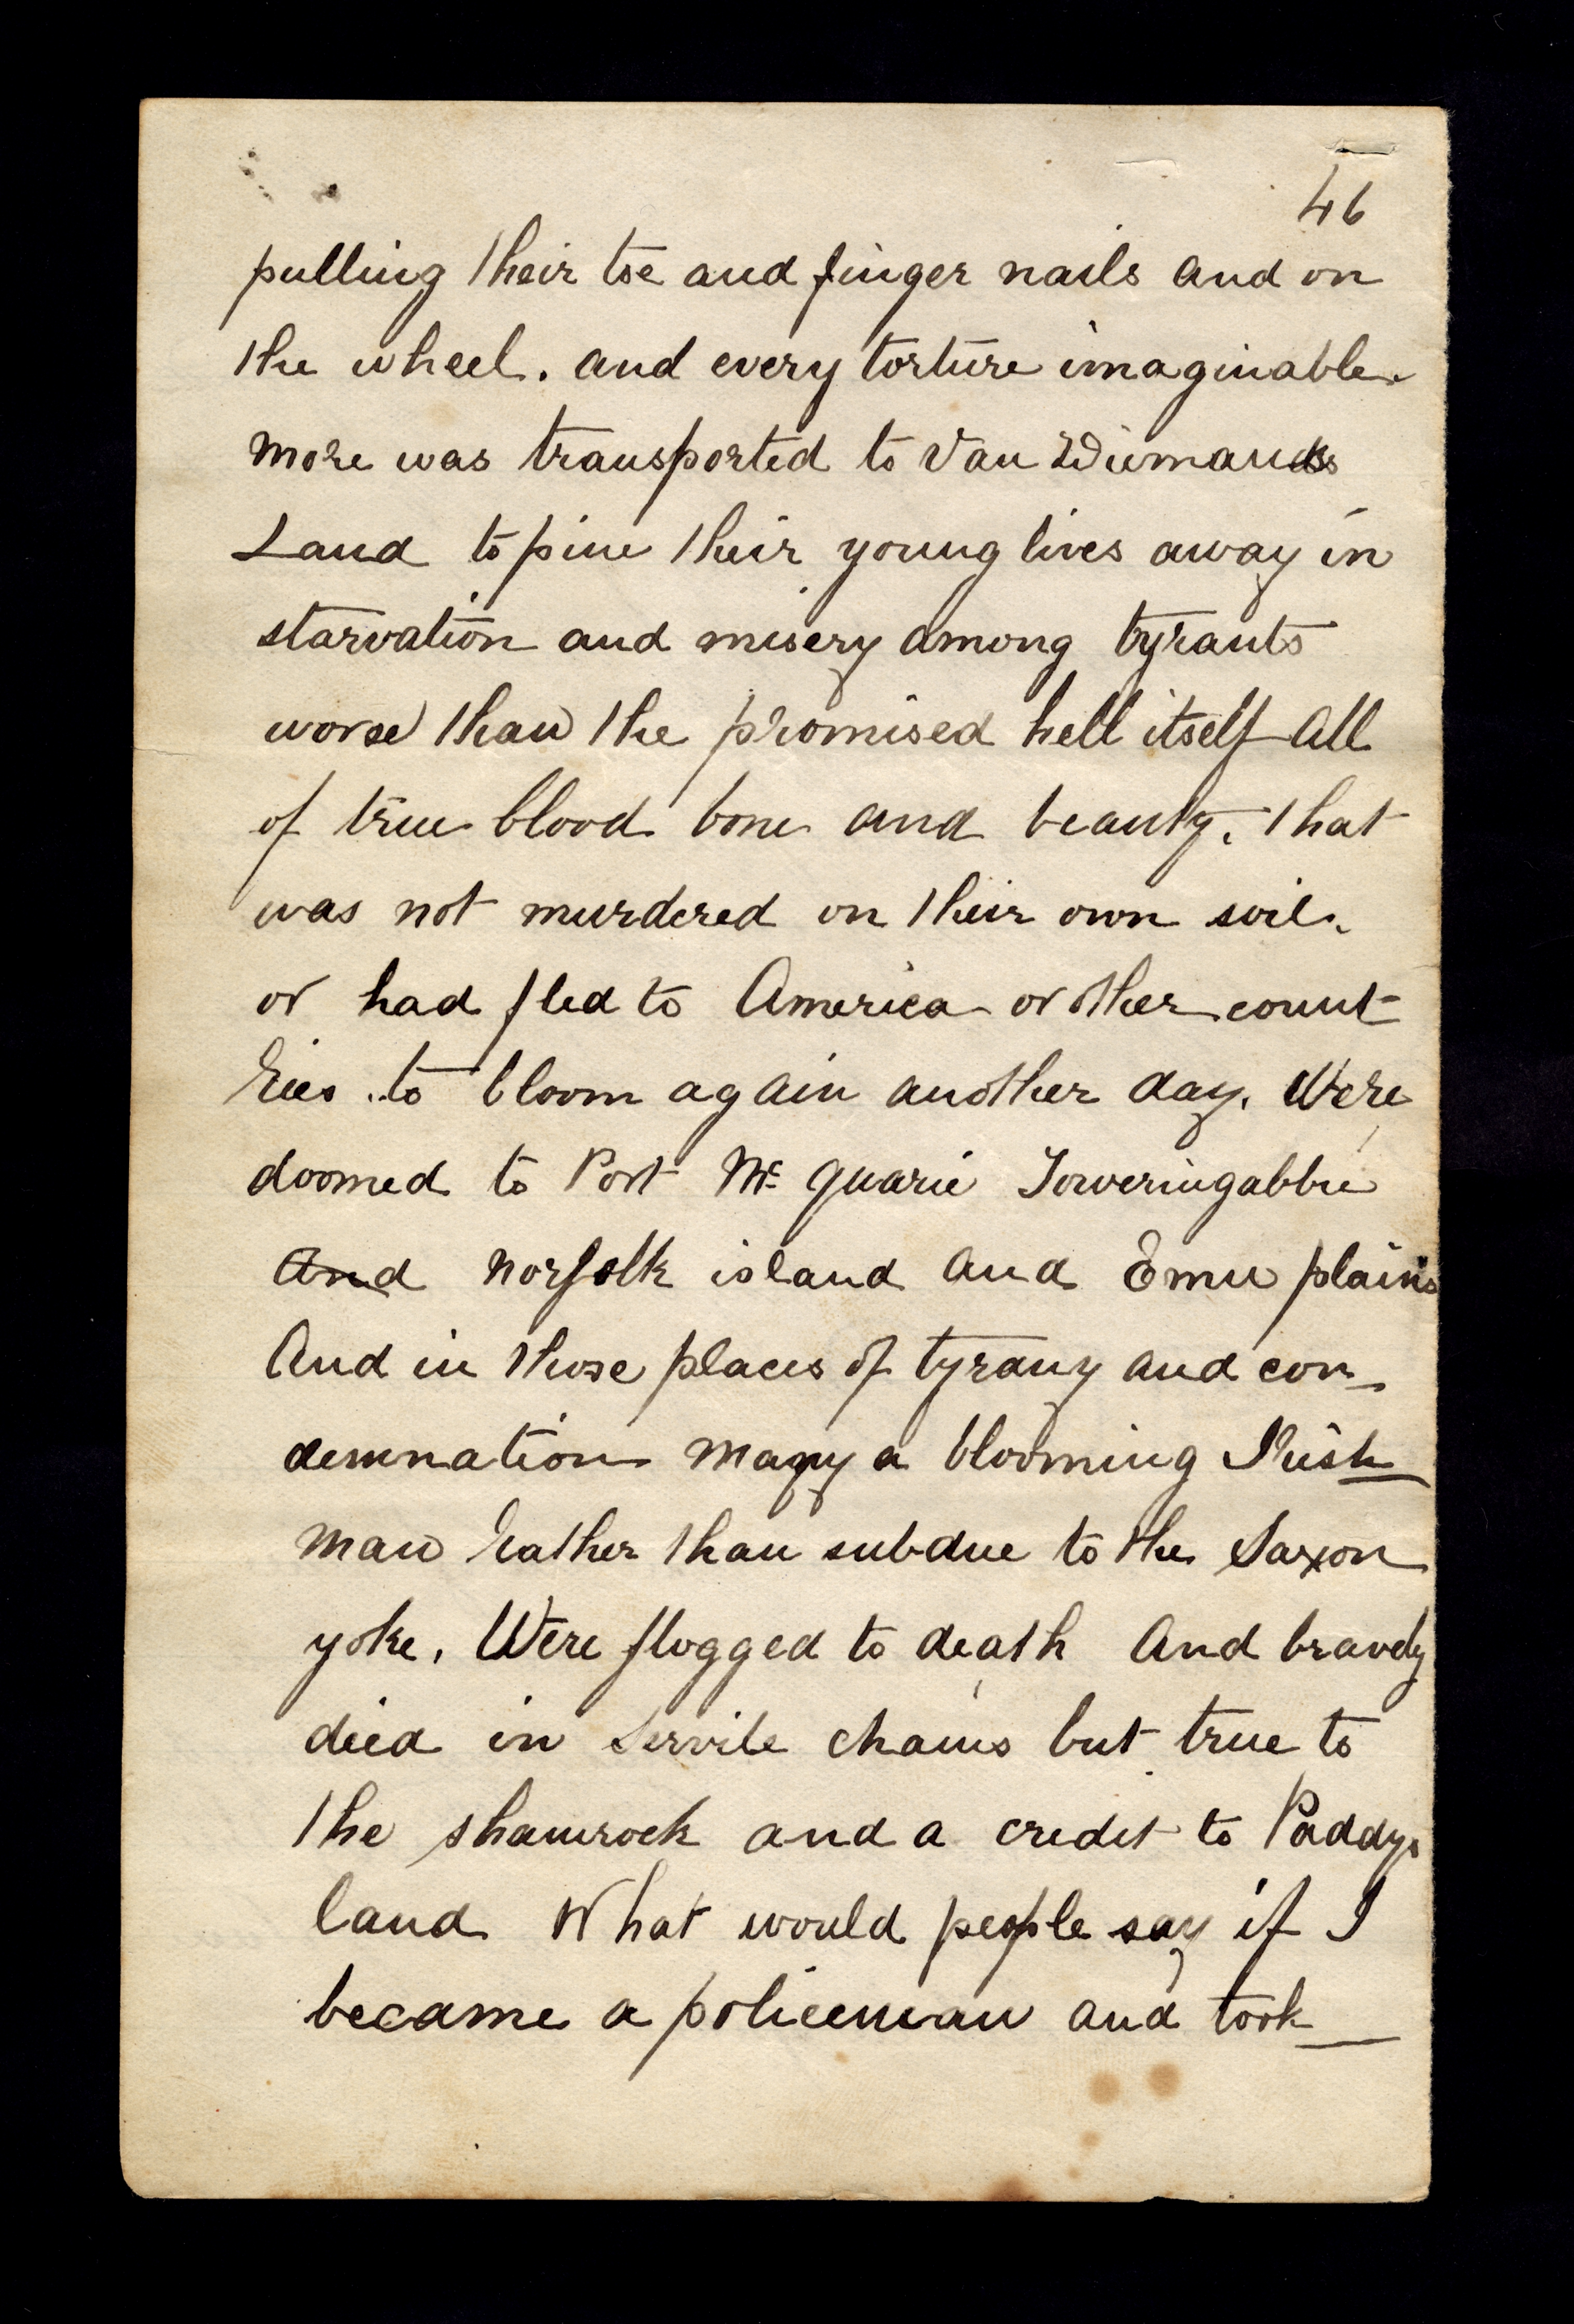 46
pulling their toe and finger nails and on
the wheel. and every torture imaginable
more was transported to Van Diemans
Land to pine their young lives away in
starvation and misery among tyrants
worse than the promised hell itself All
of true blood bone and beauty. that
was not murdered on their own soil.
or had fled to America or other count-
ries to bloom again another day. Were
doomed to Port Mc.quarie Toweringabbie
And norfolk island and Emu plains
And in those places of tyrany and con-
demnation many a blooming Irish
man rather than subdue to the Saxon
yoke. Were flogged to death And bravely
died in servile chains but true to
the shamrock and a credit to Paddys
land What would people say if I
became a policeman and took